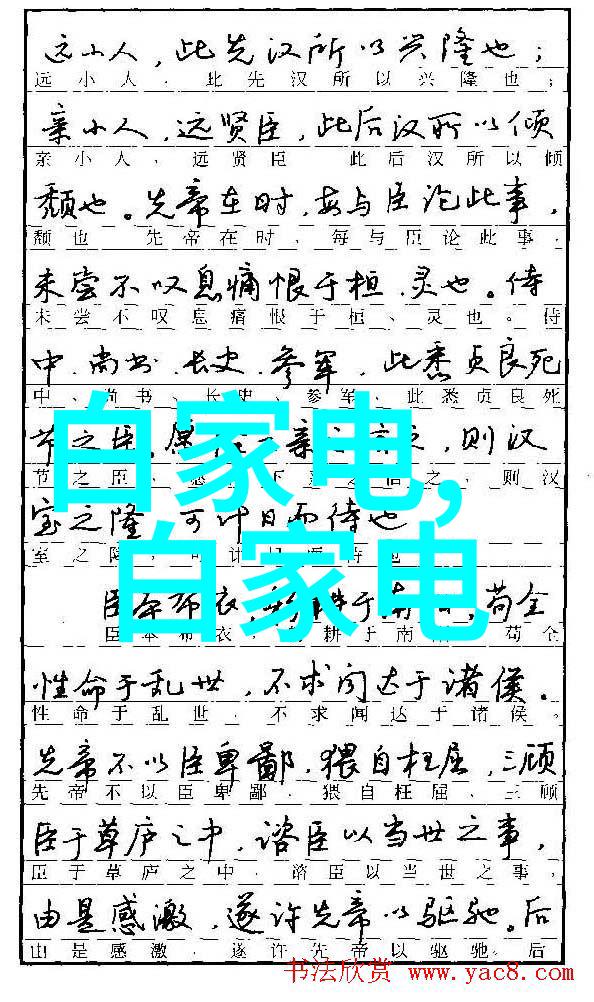 远小人，此先汉所以兴隆也；
远小人，此先汉所以兴隆也；
亲小人，远贤臣，此后汉所以倾
亲小人，远贤臣 此后汉所以倾
颓也。先帝在时，每与臣论此事，
颓也 先帝在时，每与臣论此事，
未尝不叹息痛恨于桓、灵也。侍
未尝不叹息痛恨于桓、灵也。侍
中、尚书、长史、参军，此悉贞良死
中、尚书、长史、参军，此悉贞良死
节之臣。愿 亲之 之，则汉
节之臣， 亲之信之，则汉
白家电，
室之隆，可计日而待也
室之隆，可计日而待也
白家电
臣本布衣， 耕于南 ，苟全
臣本布衣， 耕于南 苟全
性命于乱世，不求闻达于诸侯。
性命于乱世，不求闻达于诸侯。
先帝不以臣卑鄙，猥自枉屈，三顾
先帝不以臣卑鄙，猥自枉屈、三顾
臣于草庐之中，谘臣以当世之事，
臣于草庐之中，谘臣以当世之事，
由是感激，遂许先帝以驱驰。后
由是感激，遂许先帝以驱驰。后
书法欣赏 www.yac8.com